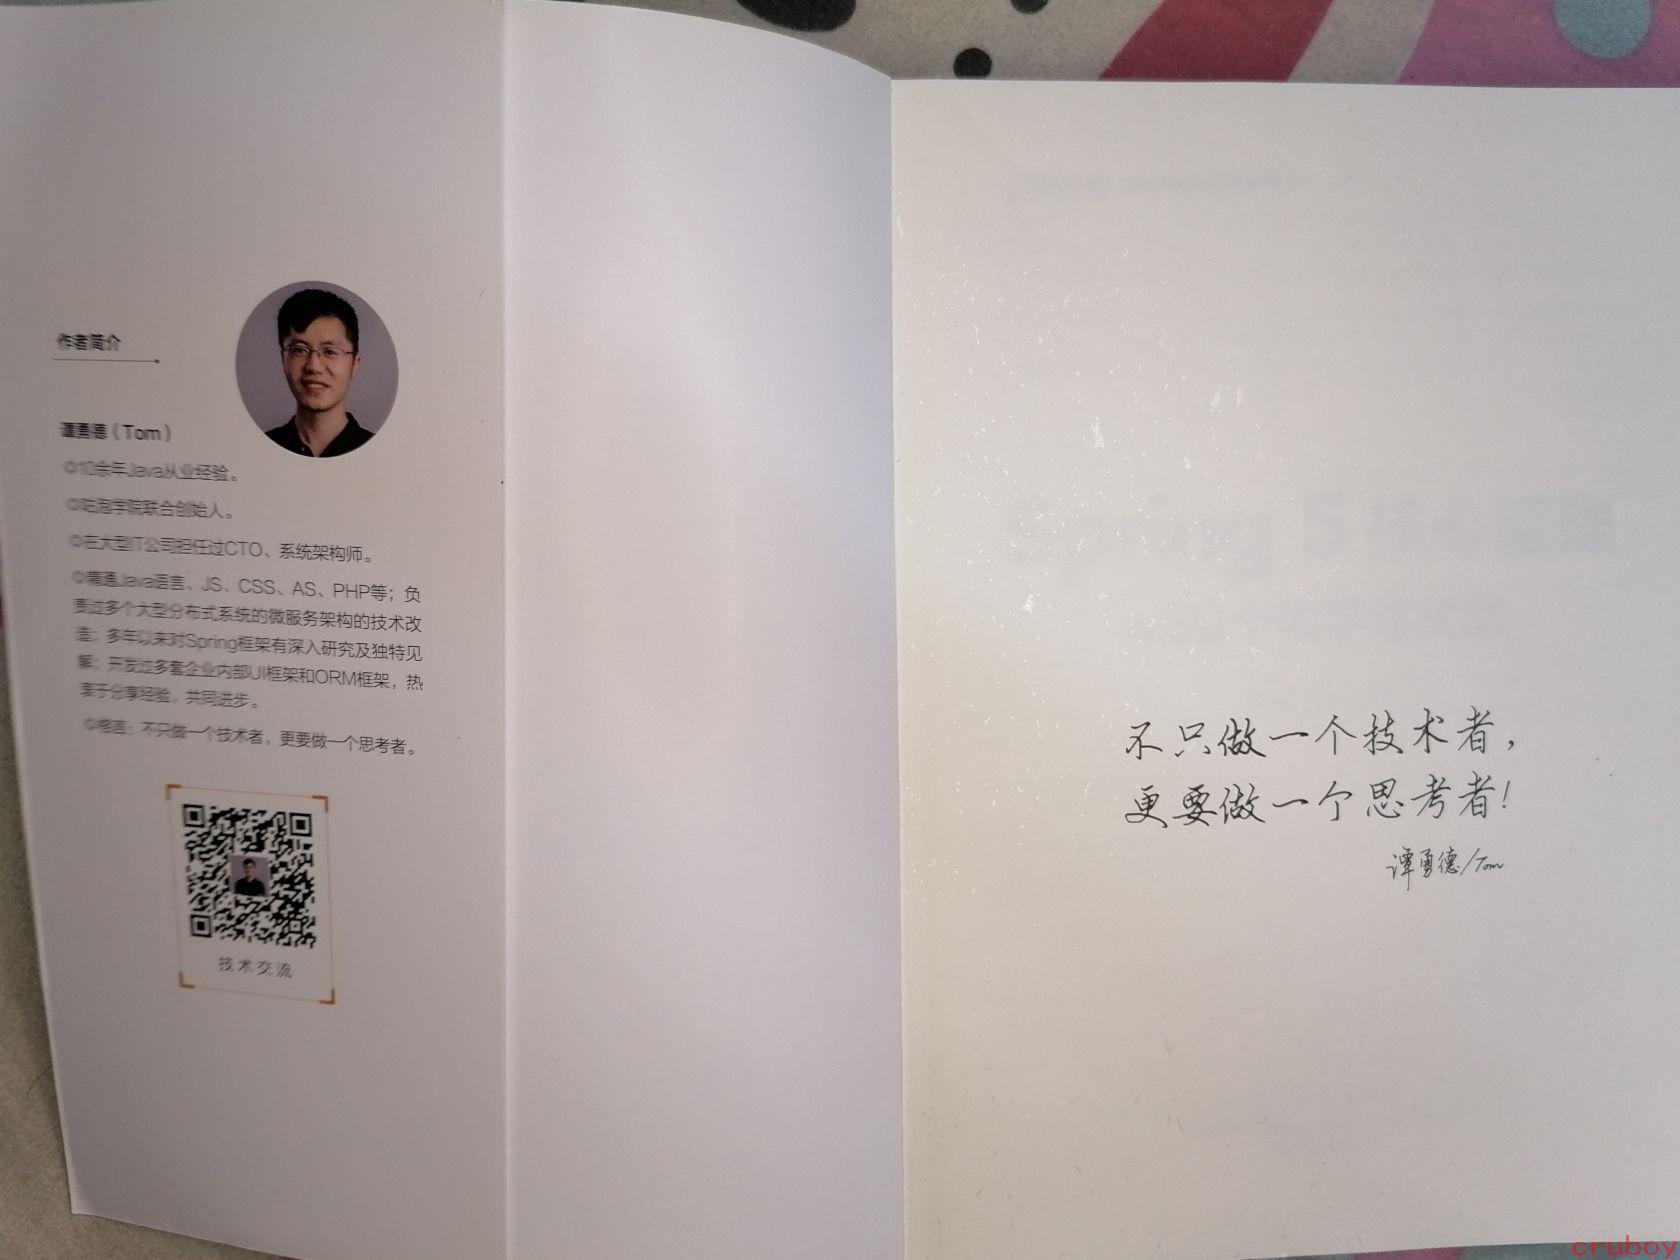 作者简介
谭勇德（Tom）
◎10余年Java从业经验。
◎咕泡学院联合创始人。
◎在大型IT公司担任过CTO、系统架构师。
◎精通Java语言、JS、CSS、AS、PHP等；负
责过多个大型分布式系统的微服务架构的技术改
造；多年以来对Spring框架有深入研究及独特见
解；开发过多套企业内部UI框架和ORM框架，热
衷于分享经验，共同进步。
◎格言：不只做一个技术者，更要做一个思考者。
技术交流
不只做一个技术者，
更要做一个思考者！
谭勇德/Tom
cruboy